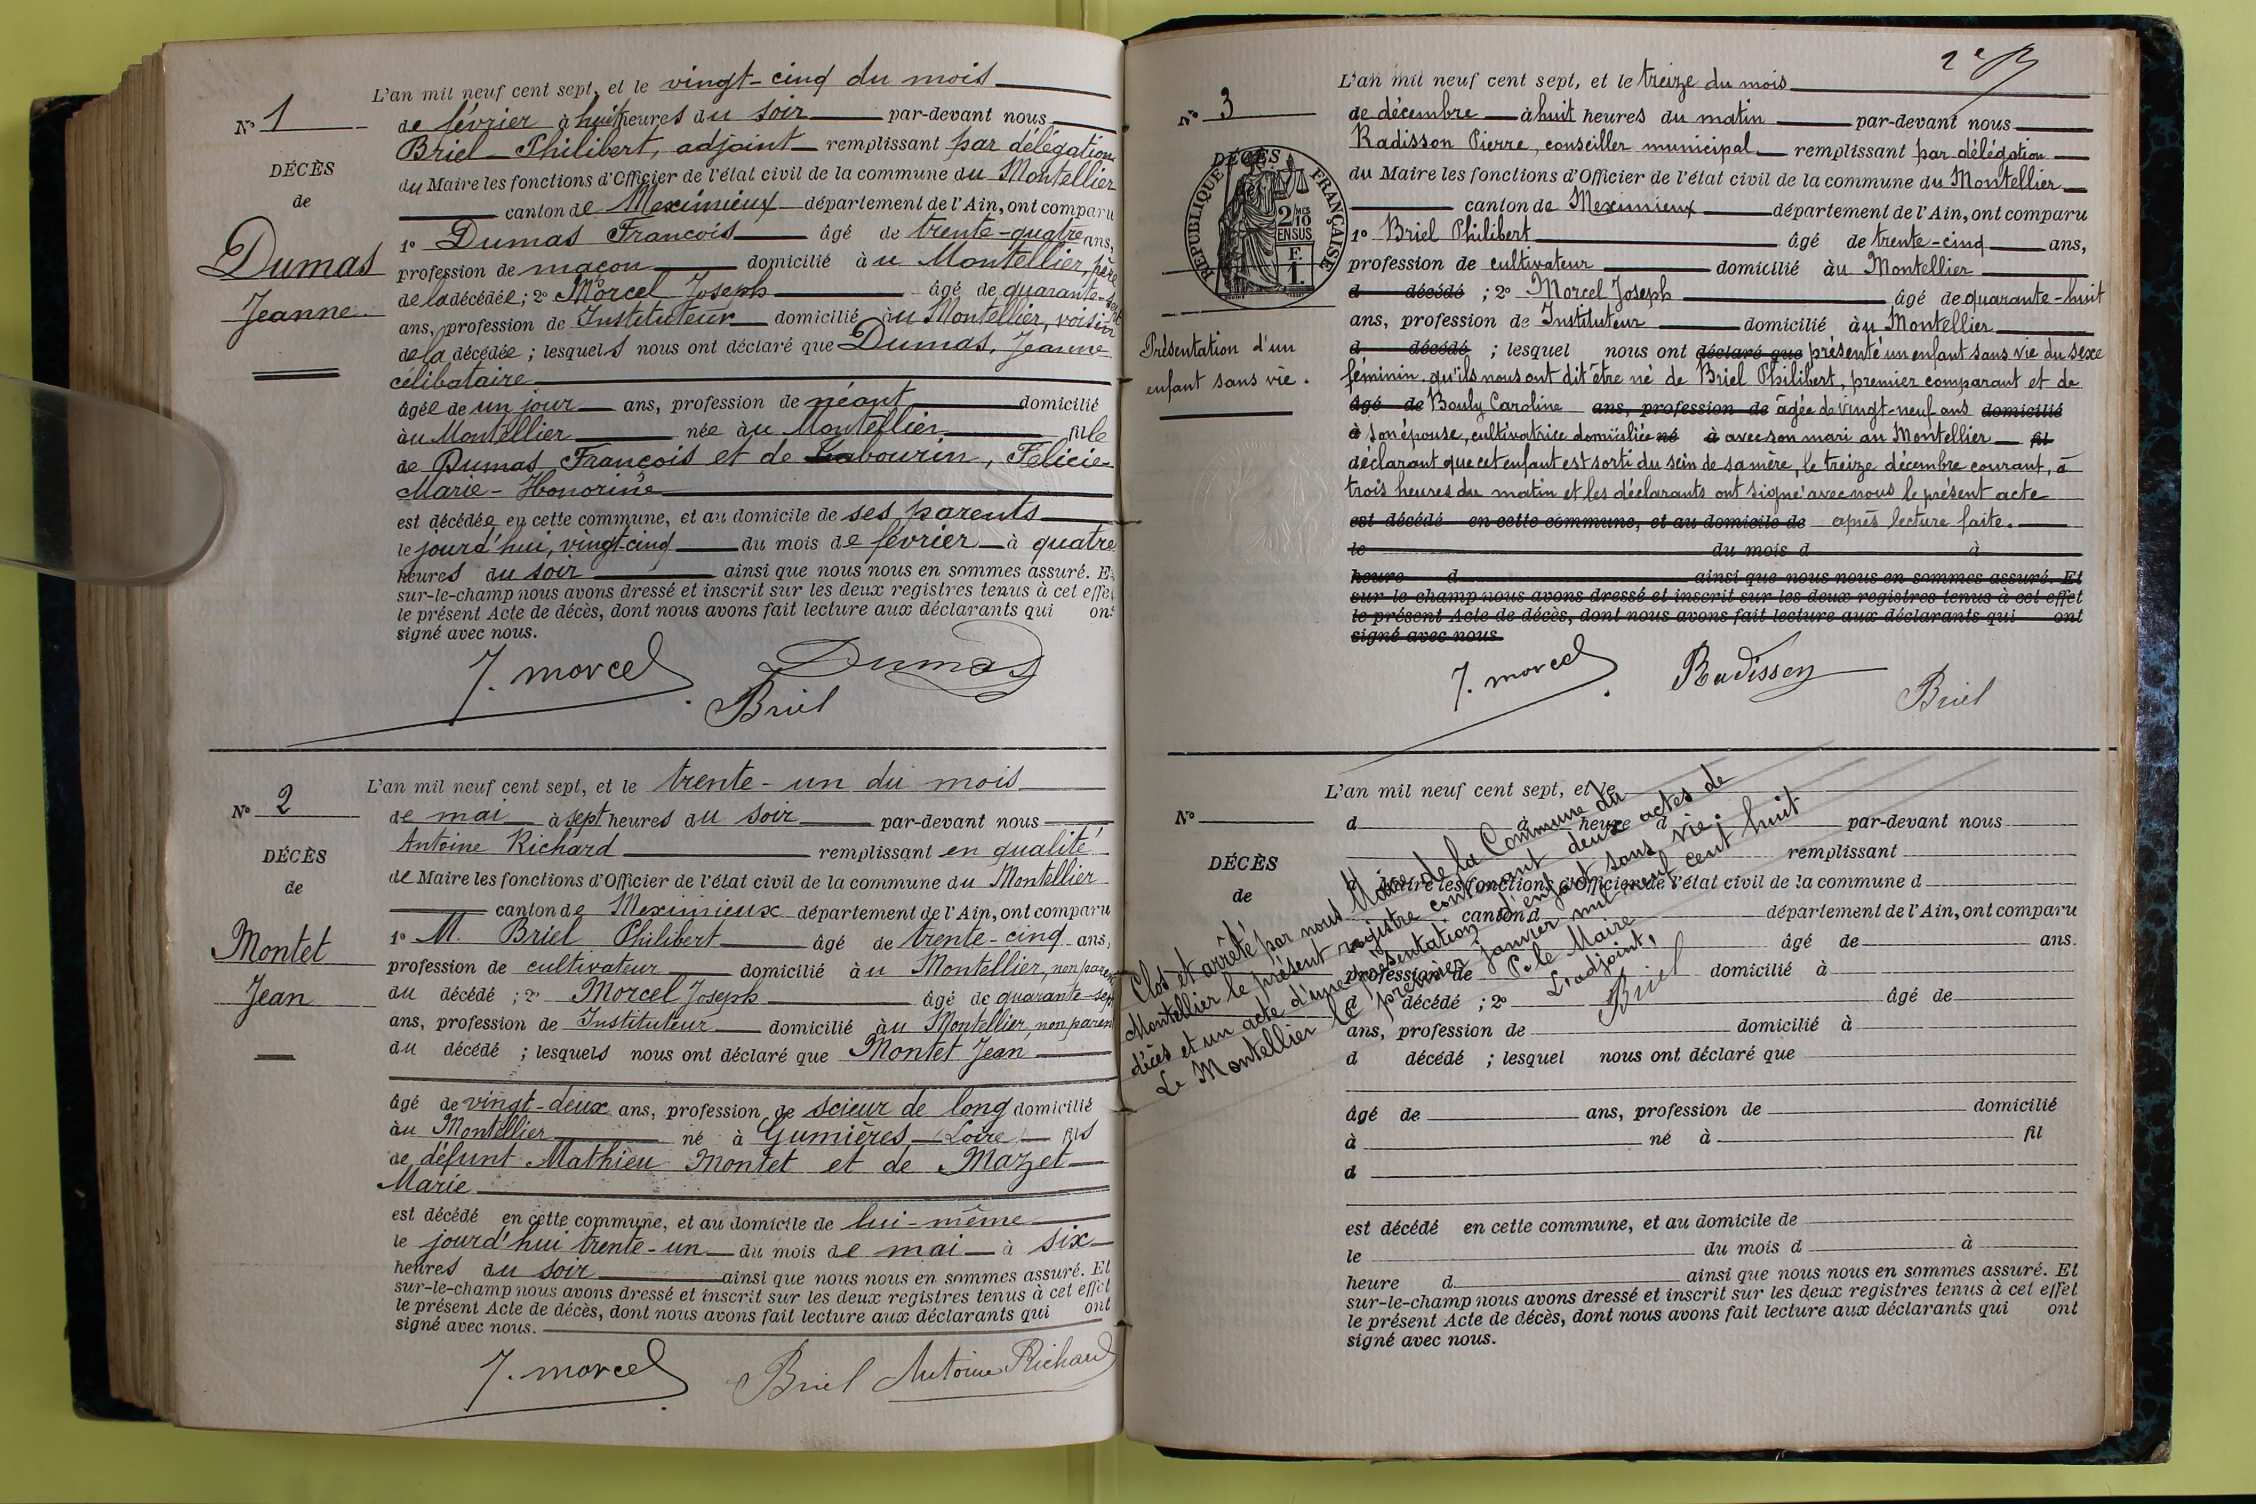 L'an mil neuf cent sept, et le vingt-cinq du mois
N° 1
de février à huit heures du soir par-devant nous
Briel Philibert, adjoint remplissant par délégation
DÉCÈS
du Maire les fonctions d'Officier de l'état civil de la commune du Montellier
de
canton de Meximieux département de l'Ain, ont comparu
1° Dumas François âgé de trente-quatre ans,
Dumas
profession de maçon domicilié au Montellier, père
de la décédée; 2° Morcel Joseph âgé de quarante-sept
Jeanne
ans, profession de Instituteur domicilié au Montellier, voisin
de la décédée; lesquels nous ont déclaré que Dumas, Jeanne
célibataire
âgée de un jour ans, profession de néant domicilié
au Montellier née au Montellier fille
de Dumas François et de Labourin, Félicie-
Marie-Honorine
est décédée en cette commune, et au domicile de ses parents
le jourd'hui, vingt-cinq du mois de février à quatre
heures du soir ainsi que nous nous en sommes assuré. Et
sur-le-champ nous avons dressé et inscrit sur les deux registres tenus à cet effet
le présent Acte de décès, dont nous avons fait lecture aux déclarants qui ont
signé avec nous.
J. Morcel Dumas
Briel
L'an mil neuf cent sept, et le trente-un du mois
N° 2
de mai à sept heures du soir par-devant nous
Antoine Richard remplissant en qualité
DÉCÈS
de Maire les fonctions d'Officier de l'état civil de la commune du Montellier
de
canton de Meximieux département de l'Ain, ont comparu
Montet
1° M. Briel Philibert âgé de trente-cinq ans,
profession de cultivateur domicilié au Montellier, non parent
Jean
du décédé; 2° Morcel Joseph âgé de quarante-sept
ans, profession de Instituteur domicilié au Montellier, non parent
du décédé; lesquels nous ont déclaré que Montet Jean
âgé de vingt-deux ans, profession de scieur de long domicilié
au Montellier né à Gumières (Loire) fils
de défunt Mathieu Montet et de Mazet
Marie
est décédé en cette commune, et au domicile de lui-même
le jourd'hui trente-un du mois de mai à six
heures du soir ainsi que nous nous en sommes assuré. Et
sur-le-champ nous avons dressé et inscrit sur les deux registres tenus à cet effet
le présent Acte de décès, dont nous avons fait lecture aux déclarants qui ont
signé avec nous.
J. Morcel Briel Antoine Richard
2e
L'an mil neuf cent sept, et le treize du mois
N° 3
de décembre à huit heures du matin par-devant nous
Radisson Pierre, conseiller municipal remplissant par délégation
DÉCÈS
RÉPUBLIQUE FRANÇAISE
2 MES 10 EN SUS
F. 1
du Maire les fonctions d'Officier de l'état civil de la commune du Montellier
canton de Meximieux département de l'Ain, ont comparu
1° Briel Philibert âgé de trente-cinq ans,
profession de cultivateur domicilié au Montellier
d décédé; 2° Morcel Joseph âgé de quarante-huit
ans, profession de Instituteur domicilié au Montellier
Présentation d'un
enfant sans vie.
d décédé; lesquel nous ont déclaré que présenté un enfant sans vie du sexe
féminin qu'ils nous ont dit être né de Briel Philibert, premier comparant et de
âgé de Bouly Caroline ans, profession de âgée de vingt-neuf ans domicilié
à son épouse, cultivatrice domiciliée né à avec son mari au Montellier fil
déclarant que cet enfant est sorti du sein de sa mère, le treize décembre courant, à
trois heures du matin et les déclarants ont signé avec nous le présent acte
est décédé en cette commune, et au domicile de après lecture faite.
le du mois d à
heure d ainsi que nous nous en sommes assuré. Et
sur-le-champ nous avons dressé et inscrit sur les deux registres tenus à cet effet
le présent Acte de décès, dont nous avons fait lecture aux déclarants qui ont
signé avec nous.
J. Morcel Radisson Briel
L'an mil neuf cent sept, et le
N°
d à heure d par-devant nous
remplissant
DÉCÈS
d Maire les fonctions d'Officier de l'état civil de la commune d
de
canton d département de l'Ain, ont comparu
âgé de ans.
profession de domicilié à
d décédé; 2° âgé de
ans, profession de domicilié à
d décédé; lesquel nous ont déclaré que
âgé de ans, profession de domicilié
à né à fil
d
est décédé en cette commune, et au domicile de
le du mois d à
heure d ainsi que nous nous en sommes assuré. Et
sur-le-champ nous avons dressé et inscrit sur les deux registres tenus à cet effet
le présent Acte de décès, dont nous avons fait lecture aux déclarants qui ont
signé avec nous.
Clos et arrêté par nous Maire de la Commune du
Montellier le présent registre contenant deux actes de
décès et un acte d'une présentation d'enfant sans vie.
Le Montellier le premier janvier mil neuf cent huit
P. le Maire
L'adjoint,
Briel